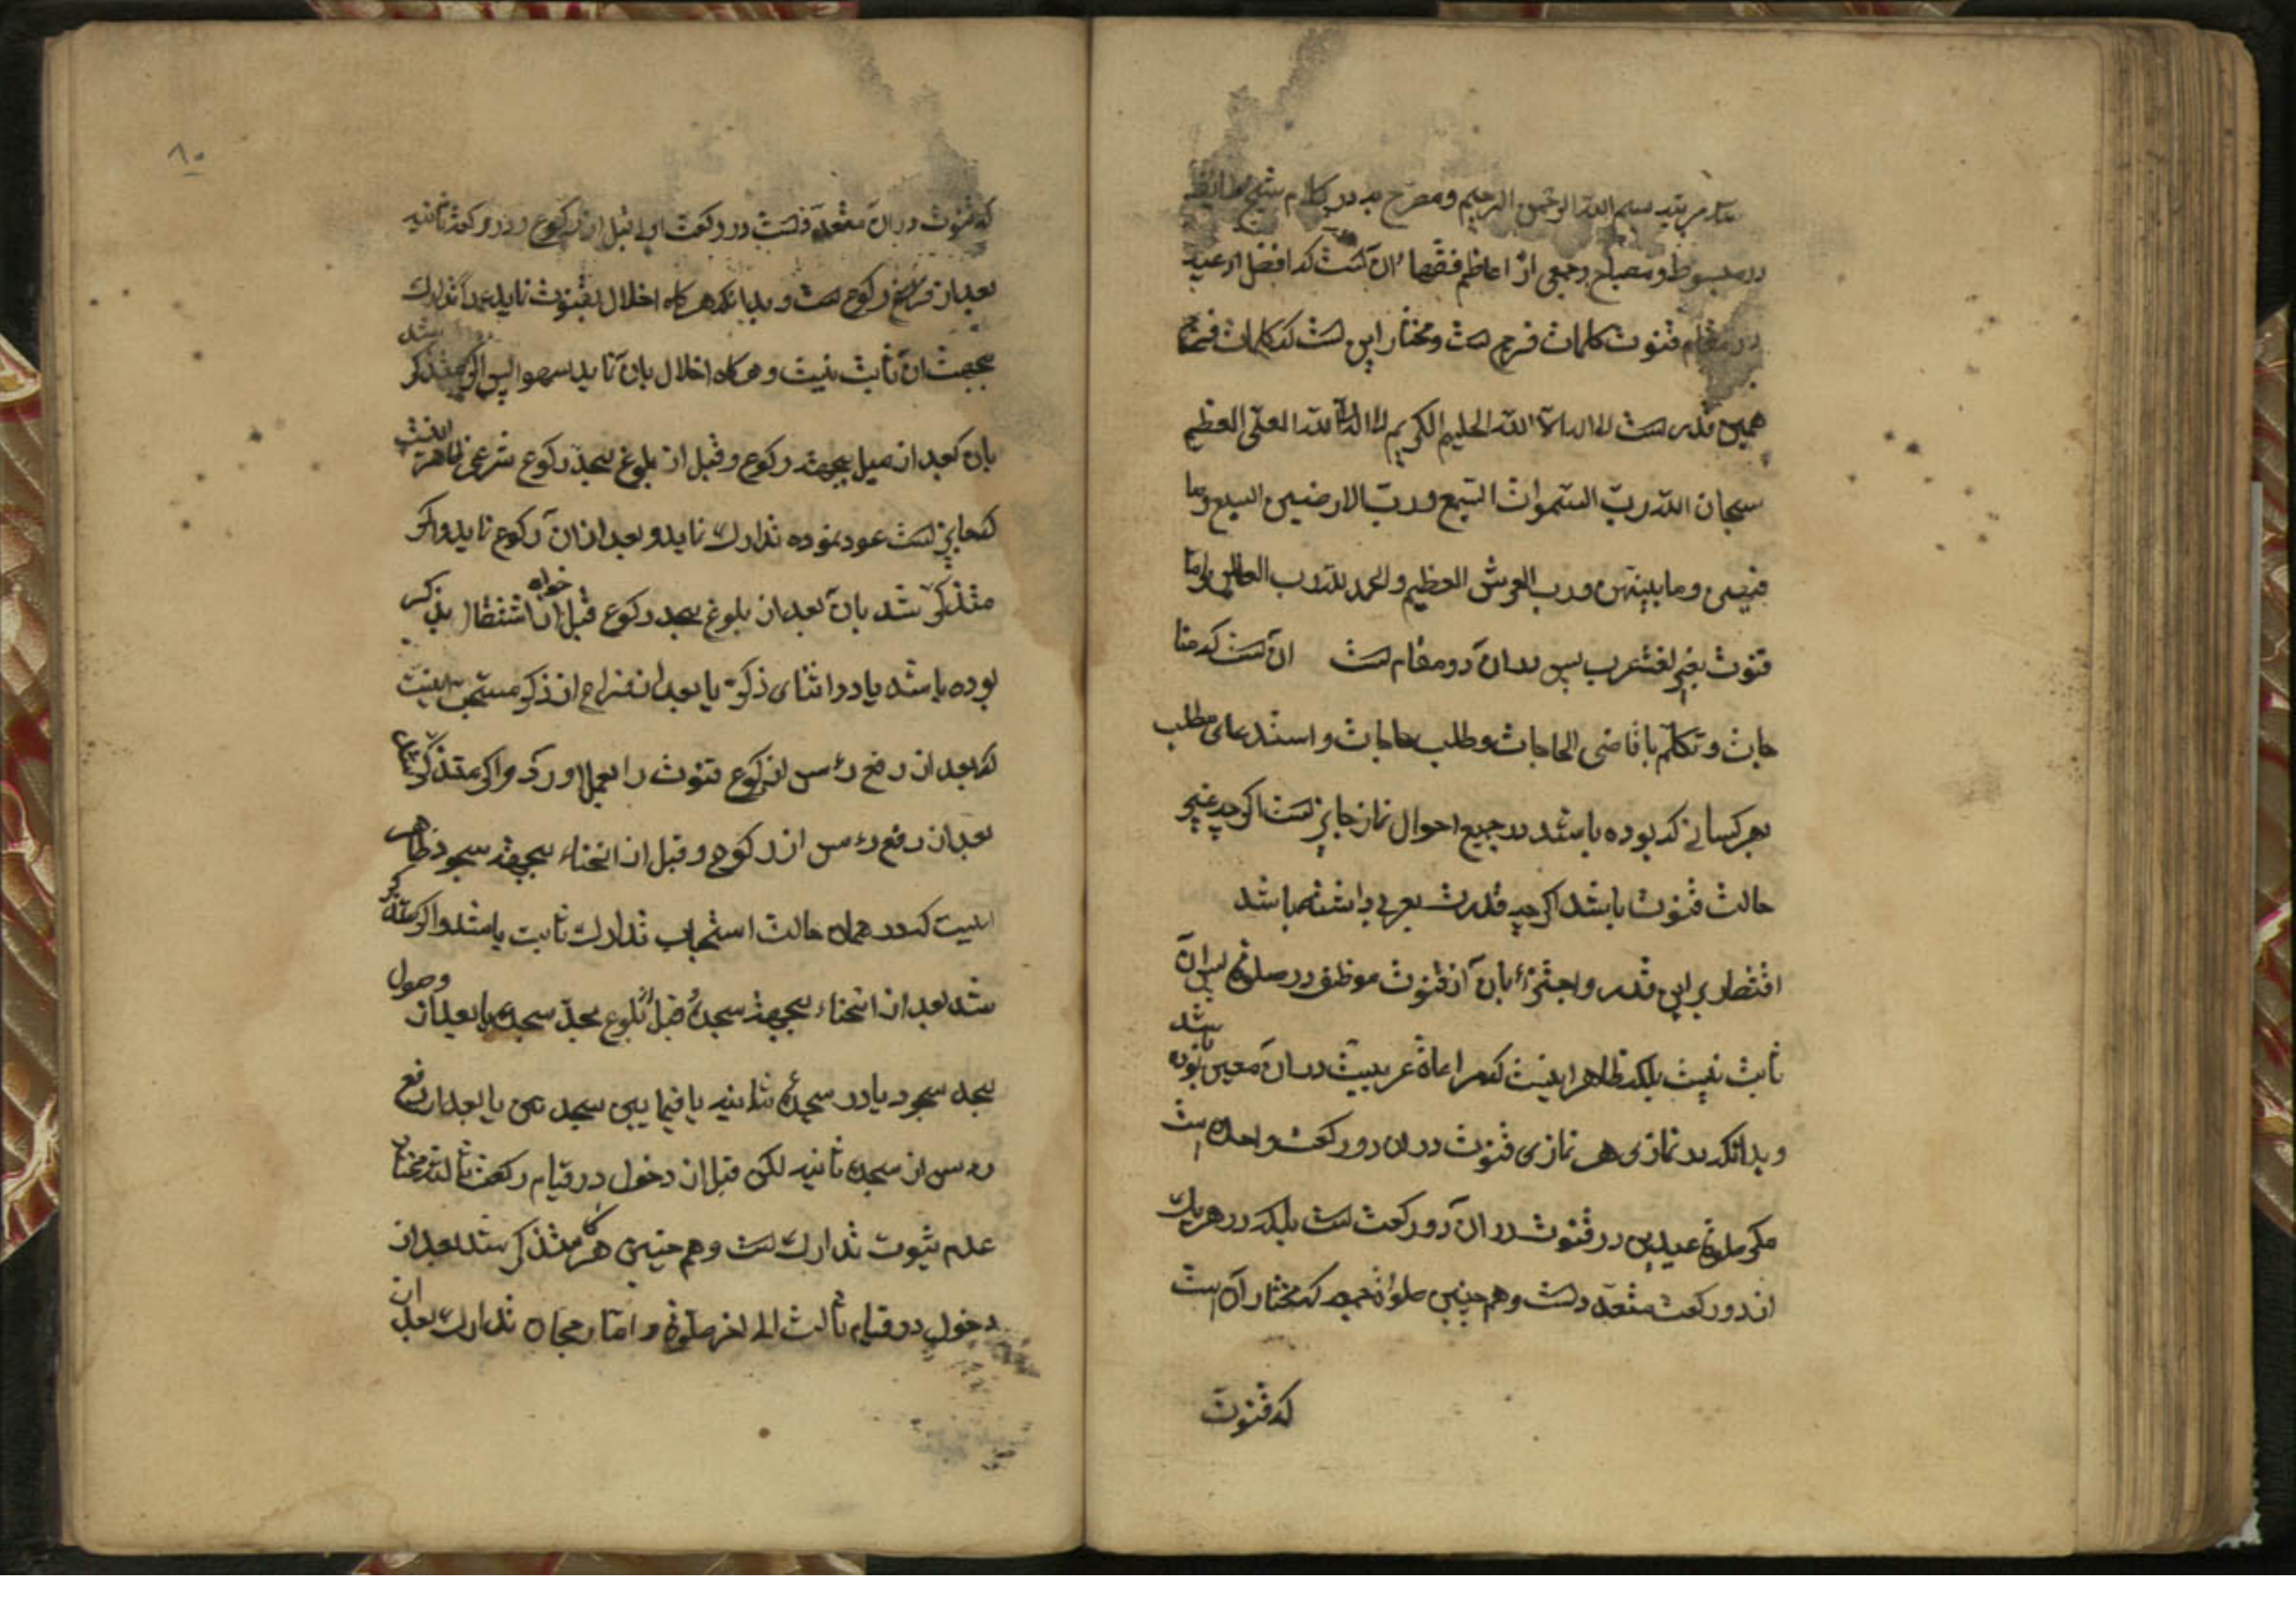 سه مرتبه بسم الله الرحمن الرحیم ومصرح به در کلام شیخ طایفه
در مبسوط ومصباح وجمعی از اعاظم فقها آن است که افضل ادعیه
در مقام قنوت کلمات فرج است ومختار این است که کلمات فرج
همین قدر است لا اله الا الله الحلیم الکریم لا اله الا الله العلی العظیم
سبحان الله رب السموات السبع ورب الارضین السبع وما
فیهن وما بینهن ورب العرش العظیم والحمد لله رب العالمین واما
قنوت بغیر لغت عرب پس در آن دو مقام است آن است که منا
جات وتکلم با قاضی الحاجات وطلب حاجات واستدعای مطلب
بهر لسانی که بوده باشد در جمیع احوال نماز جایز است اگر چه غیر
حالت قنوت باشد اگر چه قدرت بعربی داشته باشد
اقتصار بر این قدر واجتزاء بآن از قنوت موظف در صلوة پس آن
ثابت نیست بلکه ظاهر اینست که مراعاة عربیت در آن معین بوده باشد
وبدانکه در نمازی هر نمازی قنوت در آن در رکعت واحده است
مگر صلوة عیدین در قنوت در آن دو رکعت است بلکه در هر یک
از دو رکعت متعدد است وهم چنین صلوة جمعه که مختار آن است
که قنوت
۸۰
که قنوت در آن متعدد است در رکعت اولی قبل از رکوع ودر رکعة ثانیه
بعد از فراغ رکوع است وبدانکه هر گاه اخلال بقنوت نماید عمداً تدارک
بجهت آن ثابت نیست وهر گاه اخلال بآن نماید سهوا پس اگر متذکر شد
بآن بعد از میل بجهة رکوع وقبل از بلوغ بحد رکوع شرعی ظاهر اینست
که جایز است عود نموده تدارک نماید وبعد از آن رکوع نماید واگر
متذکر شد بآن بعد از بلوغ بحد رکوع خواه قبل از اشتغال بذکر
بوده باشد یا در اثنای ذکر یا بعد از فراغ از ذکر مستحب اینست
که بعد از رفع رأس از رکوع قنوت را بعمل آورد واگر متذکر شد
بعد از رفع رأس از رکوع وقبل از انحناء بجهة سجود ظاهر
اینست که در همان حالت استحباب تدارک ثابت باشد واگر متذکر
شد بعد از انحناء بجهة سجده قبل از بلوغ بحد سجده یا بعد از وصول
بحد سجود یا در سجدهٔ ثانیه یا فیما بین سجدتین یا بعد از رفع
رأس از سجده ثانیه لکن قبل از دخول در قیام رکعت ثالثه مختار
عدم ثبوت تدارک است وهم چنین هر گاه متذکر شد بعد از
دخول در قیام ثالث الی اخر صلوة واما رجحان تدارک بعد از